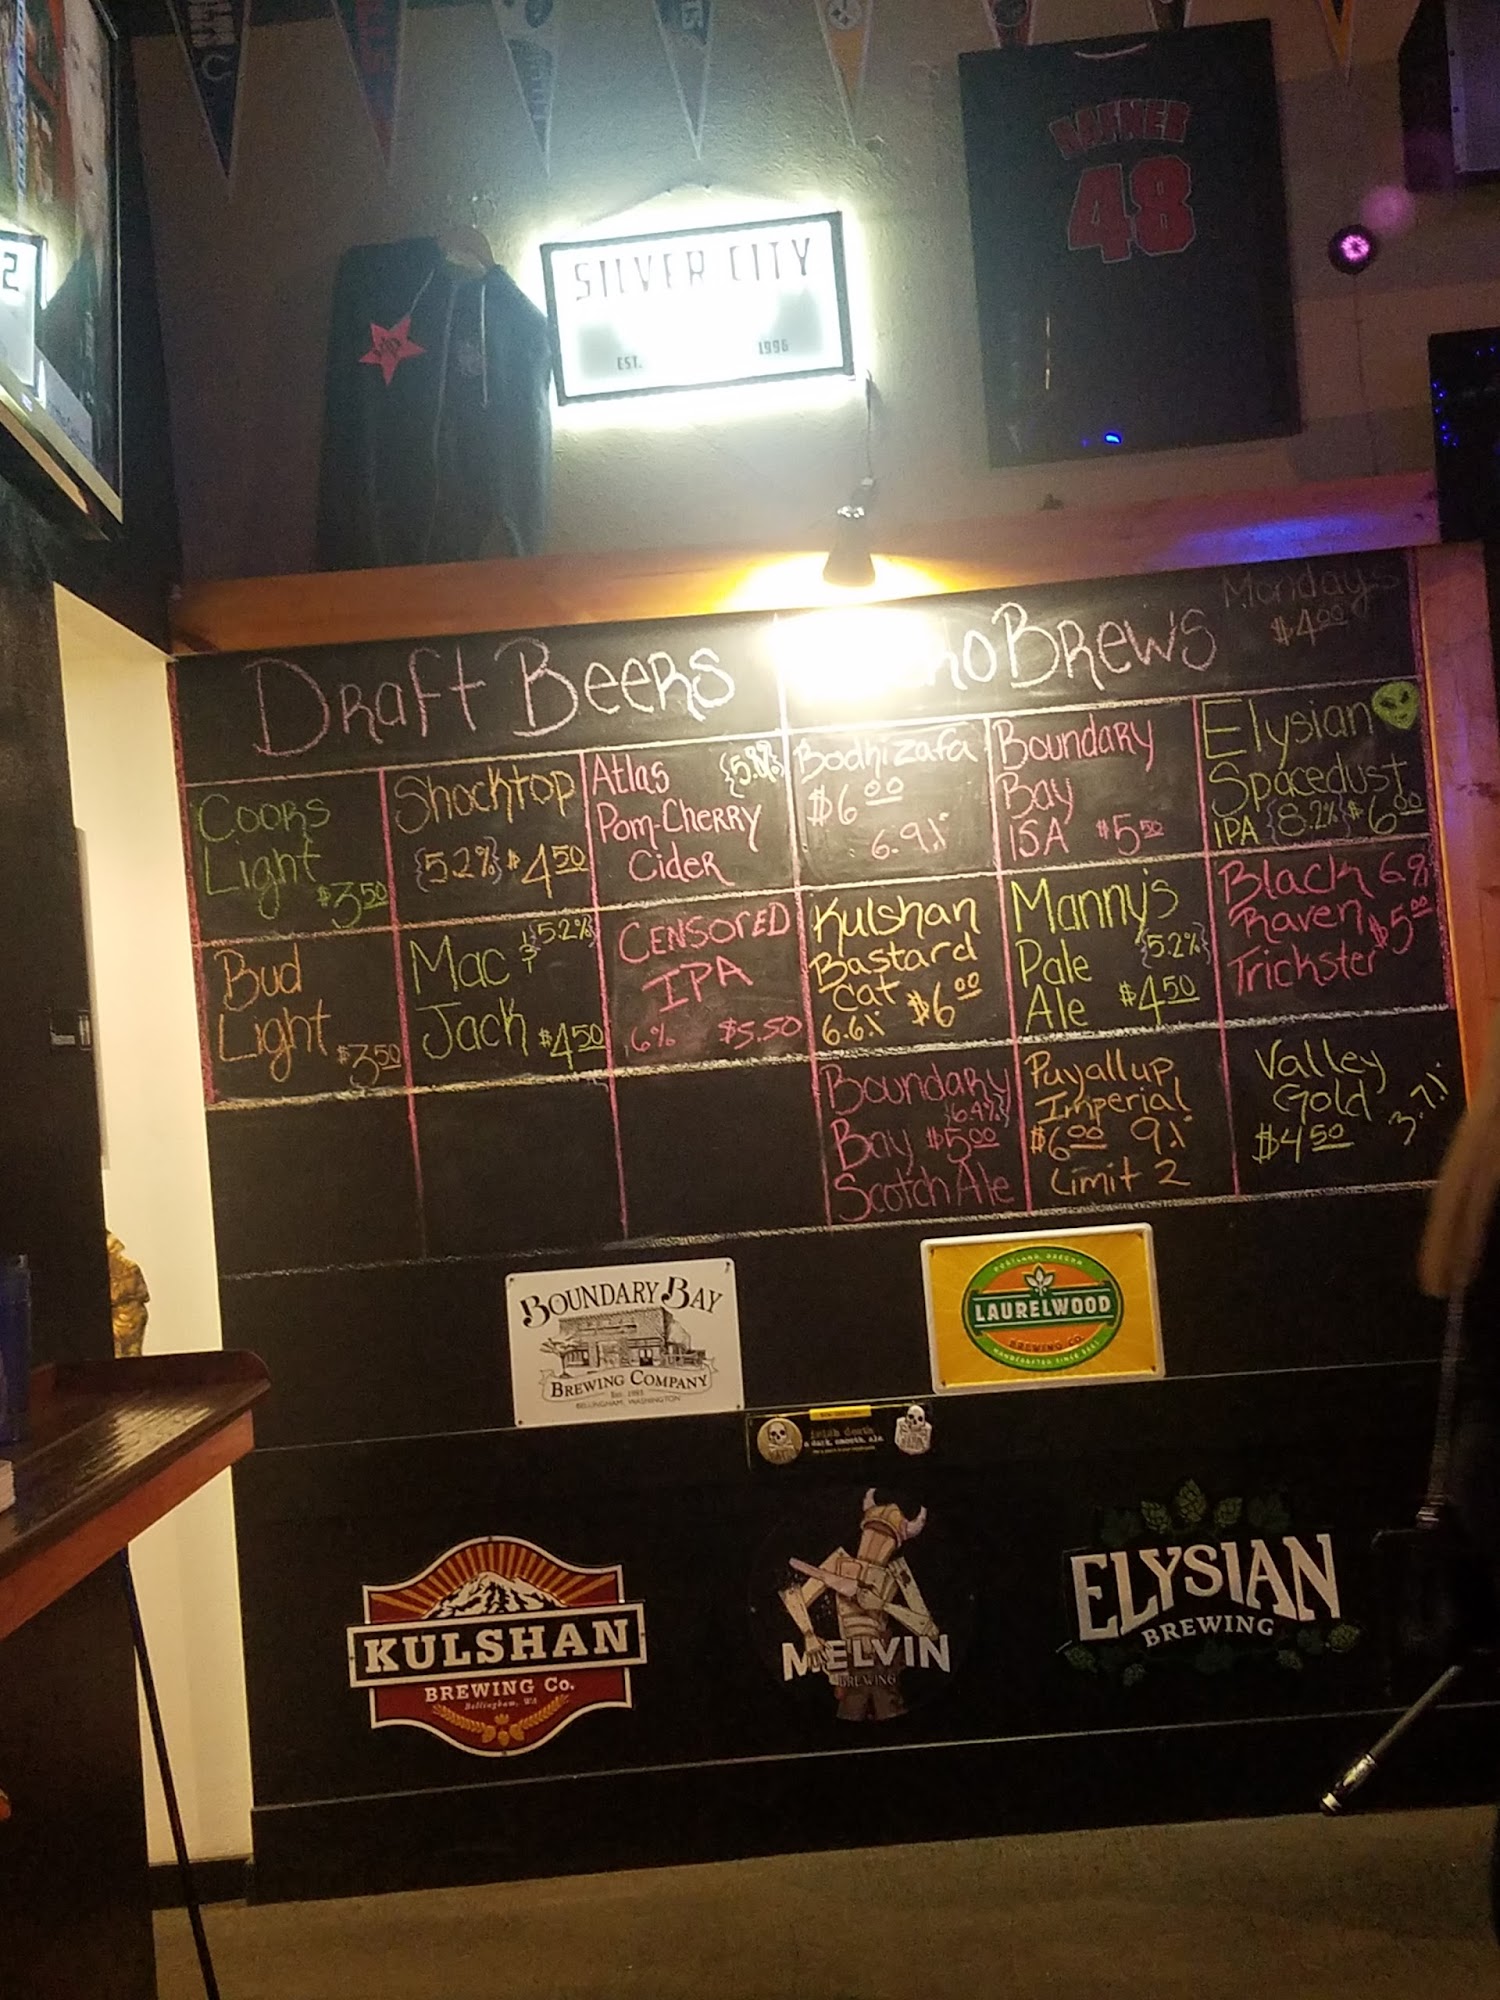 SILVER CITY
EST. 1996
48
2
Mondays
$4.00
Draft Beers
Brews
Coors
Light
$3.50
Shocktop
{5.2%} $4.50
Atlas
Pom-Cherry
Cider
Bodhizafa
$6.00
6.9%
Boundary
Bay
ISA $5.50
Elysian
Spacedust
IPA {8.2%} $6.00
Bud
Light
$3.50
Mac & {5.2%}
Jack $4.50
CENSORED
IPA
6% $5.50
Kulshan
Bastard
Cat
6.6% $6.00
Manny's
Pale {5.2%}
Ale $4.50
Black 6.9%
Raven $5.00
Trickster
Boundary
{6.4%}
Bay $5.00
Scotch Ale
Puyallup
Imperial
$6.00 9%
Limit 2
Valley
Gold
$4.50 3.7%
BOUNDARY BAY
BREWING COMPANY
Est. 1995
BELLINGHAM, WASHINGTON
PORTLAND, OREGON
LAURELWOOD
BREWING CO.
HANDCRAFTED SINCE 2001
irish death
a dark, smooth, ale.
KULSHAN
BREWING Co.
Bellingham, WA
MELVIN
BREWING
ELYSIAN
BREWING